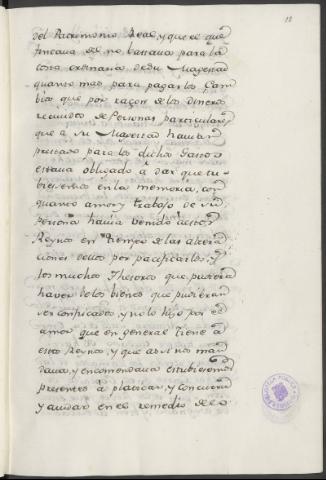 18
del Patrimonio Real, y que el que
fincava de no bastava para la
costa ordinaria de su Magestad
quanto mas para pagar los Cam
bios que por razon de los dineros
recividos de Personas particulares
que a su Magestad havian
prestado para los dichos Gastos
estava obligado à dar que tu-
biesemos en la memoria, con
quanto amor y trabajo de su
persona havia venido à estos
Reynos en tiempo de las altera
ciones dellos por pacificarlos, y
los muchos Thesoros que pudiera
haver de los bienes que pudieran
ser confiscados, y no lo hizo por el
amor que en general tiene à
estos Reynos, y que assi nos man
dava, y encomendava estubiesemos
presentes à platicar, y concertar
y ayudar en el remedio de lo